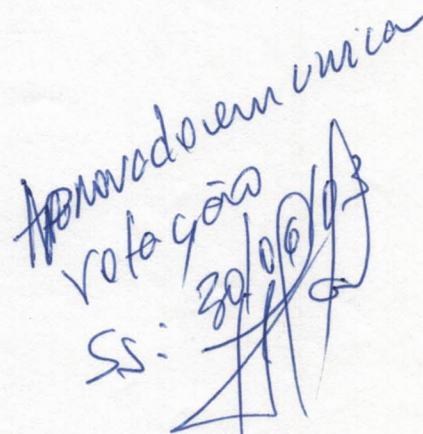 Aprovado em unica
votação
SS: 30/06/03